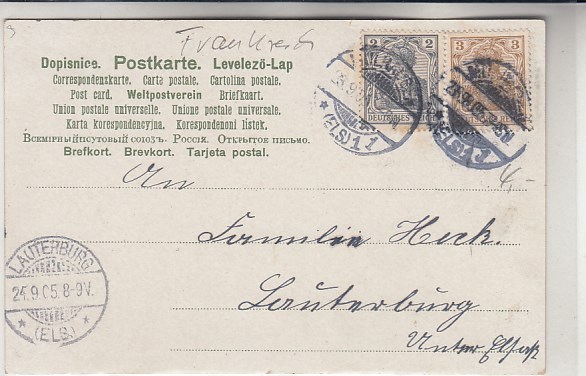 Frankreich
Dopisnice. Postkarte. Levelezö-Lap
Correspondenzkarte. Carta postale. Cartolina postale.
Post card. Weltpostverein Briefkaart.
Union postale universelle. Unione postale universale.
Karta korespondencyjna. Korespondenoni listek.
Всемірный почтовый союзъ. Россія. Открытое письмо.
Brefkort. Brevkort. Tarjeta postal.
2 2
DEUTSCHES REICH
3 3
(ELS) 1
4,-
An
Familie Heck.
Lauterburg
Unter Elsaß
LAUTERBURG
24.9.05. 8-9V.
* (ELS) *